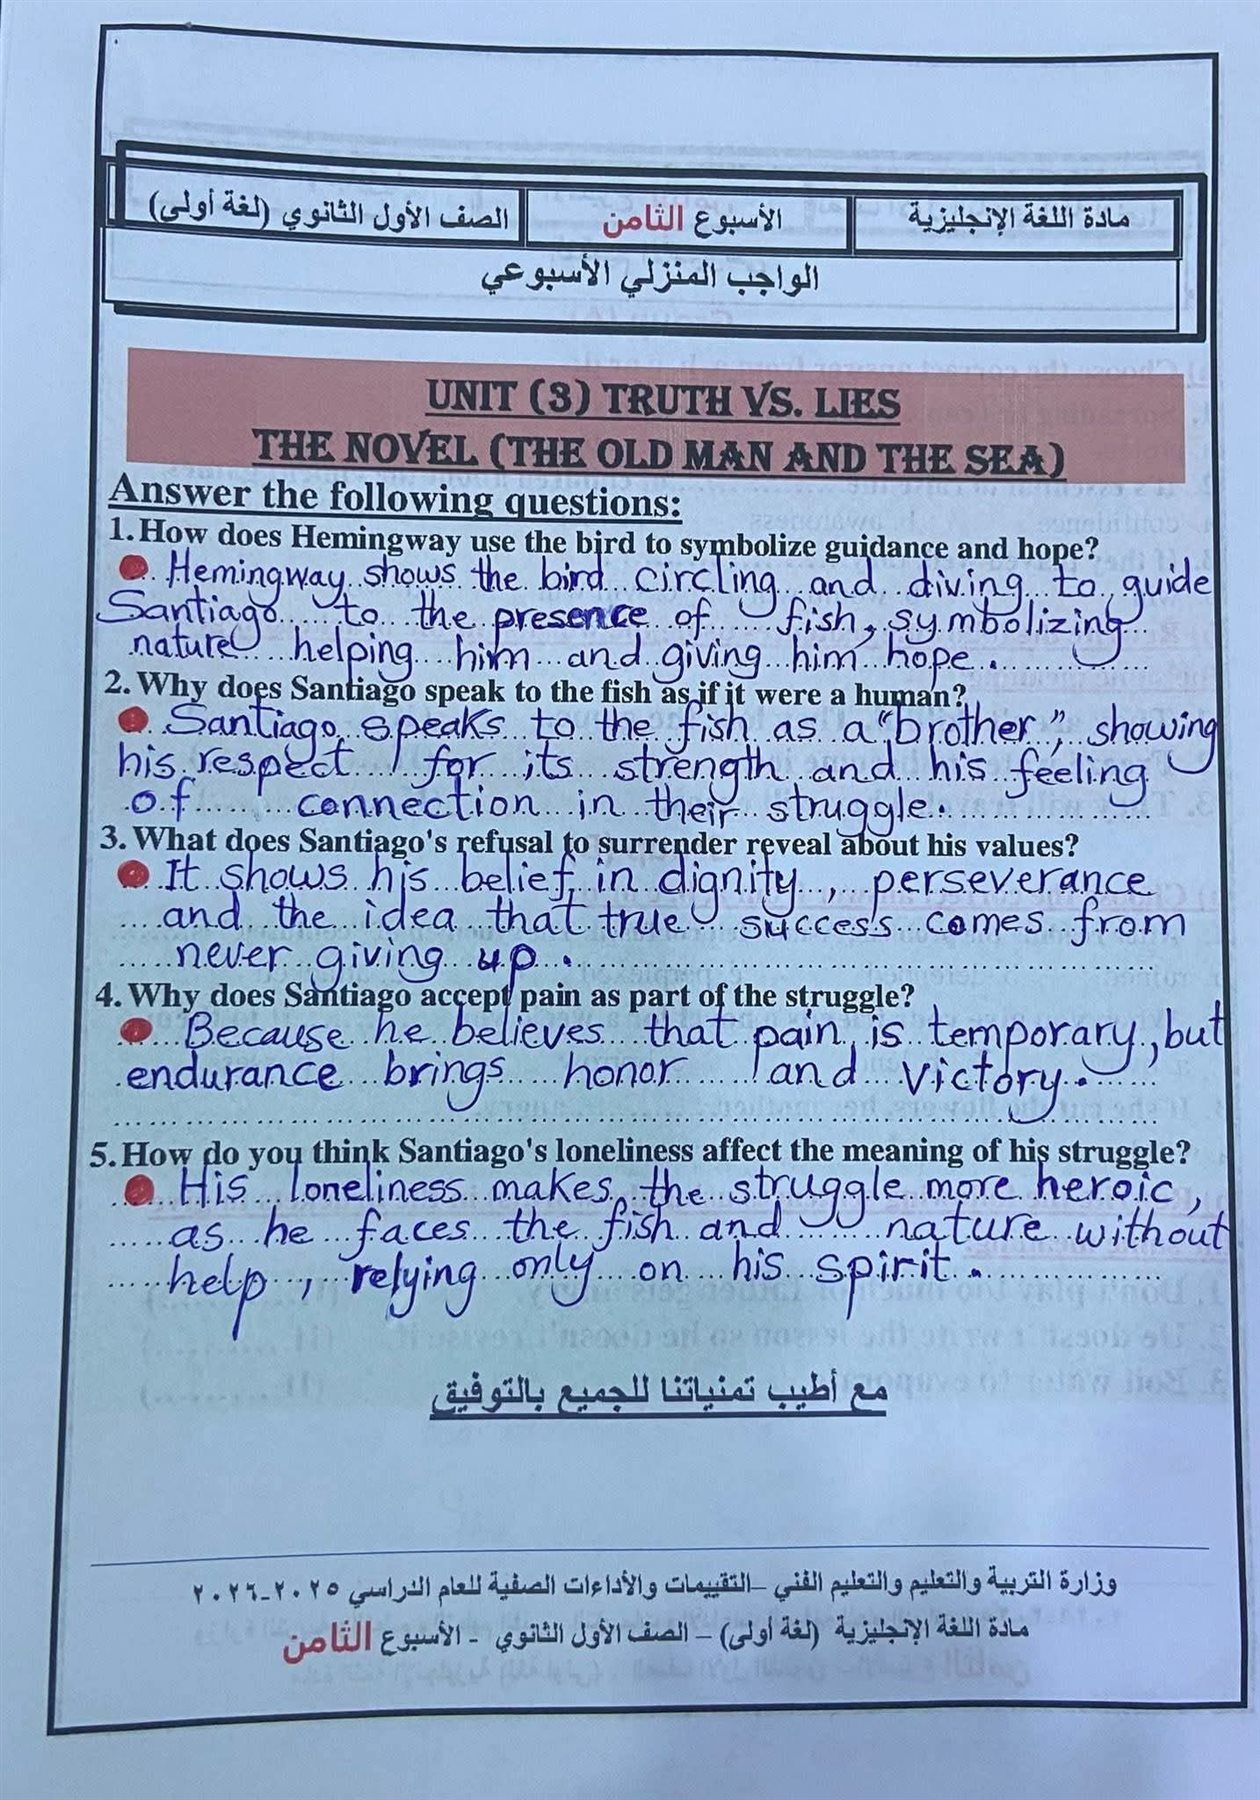 مادة اللغة الإنجليزية
الأسبوع الثامن
الصف الأول الثانوي (لغة أولى)
الواجب المنزلي الأسبوعي
UNIT (3) TRUTH VS. LIES
THE NOVEL (THE OLD MAN AND THE SEA)
Answer the following questions:
1. How does Hemingway use the bird to symbolize guidance and hope?
Hemingway shows the bird circling and diving to guide
Santiago to the presence of fish, symbolizing
nature helping him and giving him hope.
2. Why does Santiago speak to the fish as if it were a human?
Santiago speaks to the fish as a "brother", showing
his respect for its strength and his feeling
of connection in their struggle.
3. What does Santiago's refusal to surrender reveal about his values?
It shows his belief in dignity, perseverance
and the idea that true success comes from
never giving up.
4. Why does Santiago accept pain as part of the struggle?
Because he believes that pain is temporary, but
endurance brings honor and victory.
5. How do you think Santiago's loneliness affect the meaning of his struggle?
His loneliness makes the struggle more heroic,
as he faces the fish and nature without
help, relying only on his spirit.
مع أطيب تمنياتنا للجميع بالتوفيق
وزارة التربية والتعليم والتعليم الفني –التقييمات والأداءات الصفية للعام الدراسي ٢٠٢٥-٢٠٢٦
مادة اللغة الإنجليزية (لغة أولى) – الصف الأول الثانوي - الأسبوع الثامن